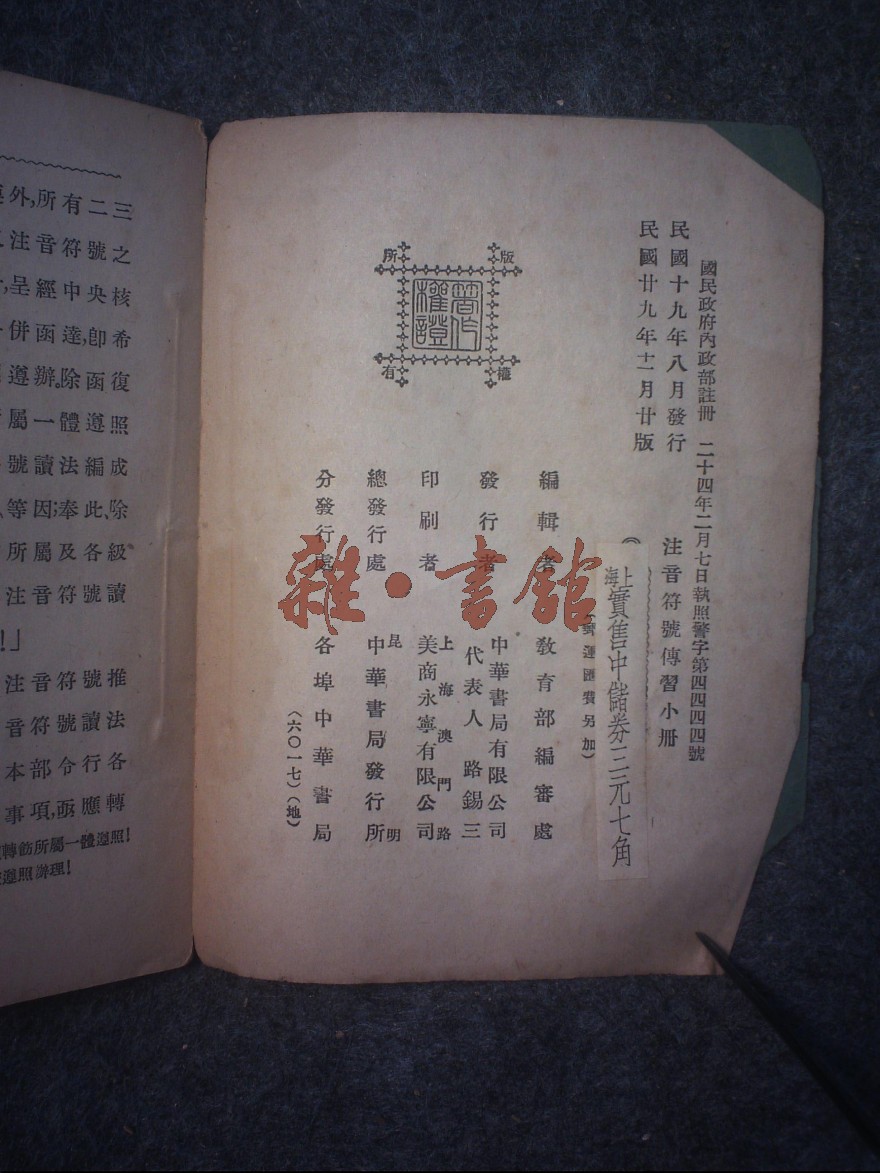 國民政府內政部註冊 二十四年二月七日執照警字第四四四四號
民國十九年八月發行
民國廿九年十二月廿版
注音符號傳習小冊
上海實售中儲券三元七角
(郵運匯費另加)
編輯者 教育部編審處
發行者 中華書局有限公司
代表人 路錫三
印刷者 上海澳門路
美商永寧有限公司
總發行處 昆明
中華書局發行所
分發行處 各埠中華書局
(六〇一七)(地)
版權所有
著作權證
雜·書館
三之核希復照成除級讀
二號央卽函遵編此,各號
有符中達,除體法奉及符
所音經函辦。一讀因;屬音
外,注呈併遵屬號等所注
!」
推法各轉
號讀行應
符號令亟
音符部項,
注音本事
轉飭所屬一體遵照!
遵照辦理!